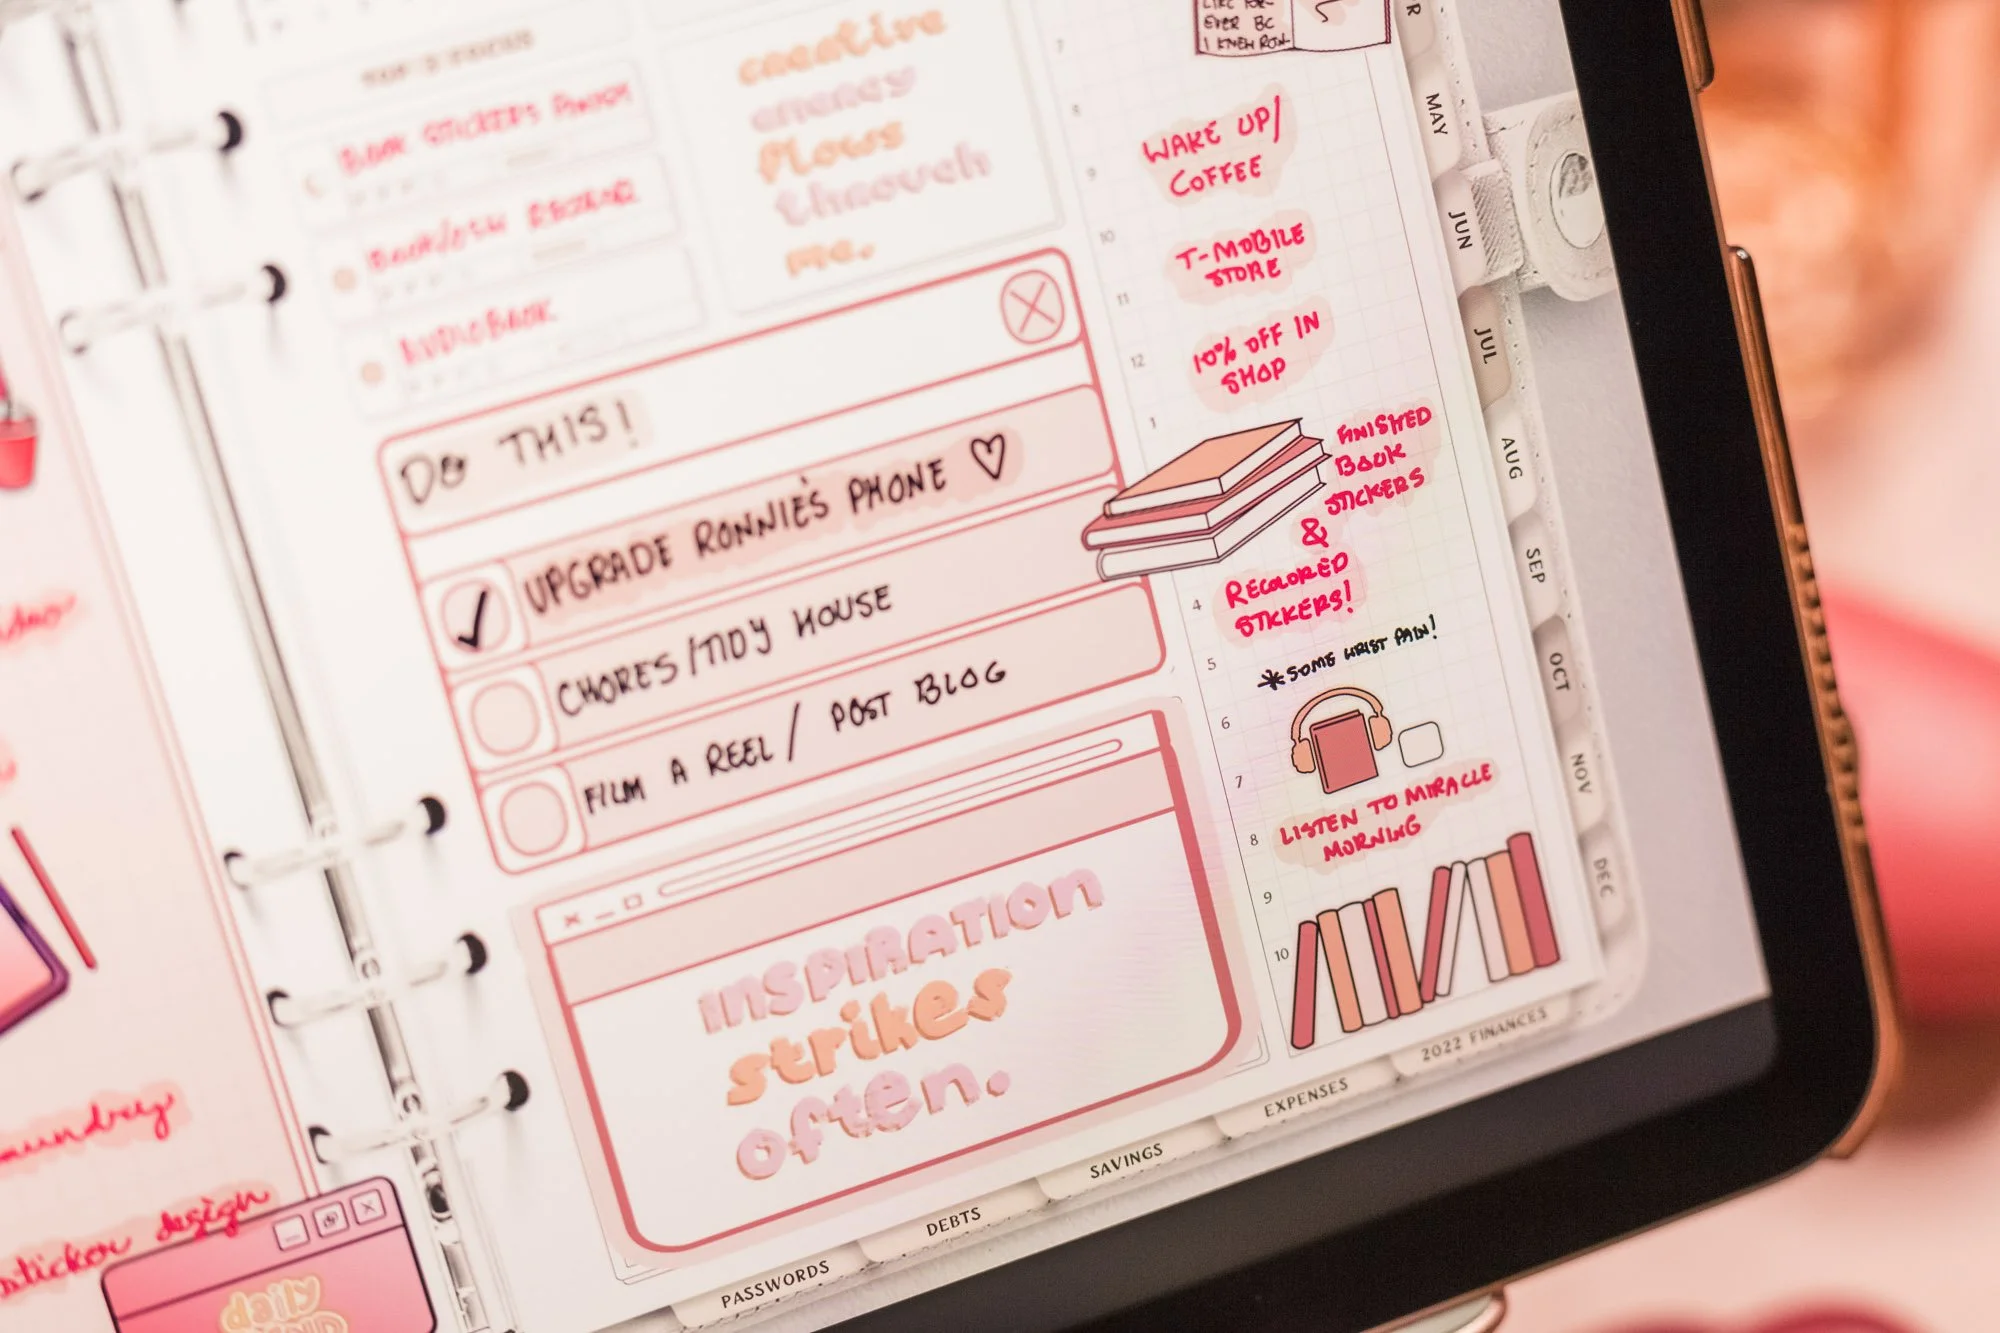 TOP 3 FOCUS
BOOK STICKERS FINISH
AUDIOBOOK
creative
money
flows
through
me.
EVER BC
I KNEW RON
WAKE UP/
COFFEE
T-MOBILE
STORE
10% OFF IN
SHOP
FINISHED
BOOK
STICKERS
&
RECOLORED
STICKERS!
*SOME WRIST PAIN!
LISTEN TO MIRACLE
MORNING
7
8
9
10
11
12
1
4
5
6
7
8
9
10
DO THIS!
UPGRADE RONNIE'S PHONE ♡
CHORES/TIDY HOUSE
FILM A REEL/ POST BLOG
INSPIRATION
strikes
often.
MAY
JUN
JUL
AUG
SEP
OCT
NOV
DEC
2022 FINANCES
EXPENSES
SAVINGS
DEBTS
PASSWORDS
laundry
sticker design
daily